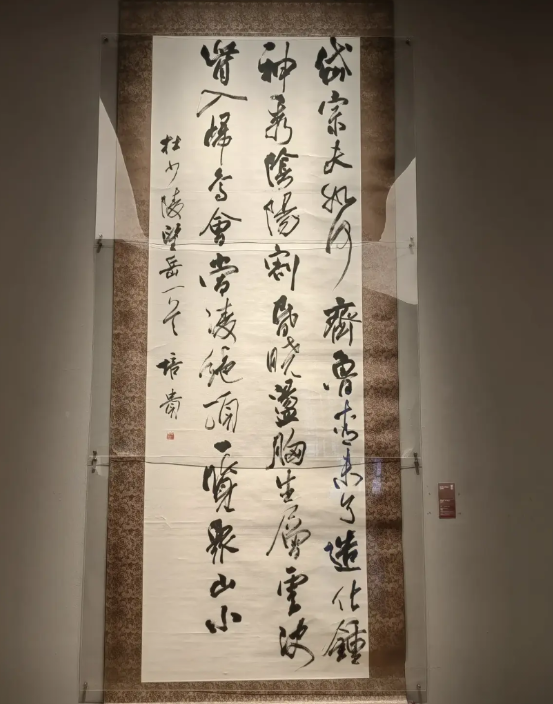 岱宗夫如何齊魯青未了造化鍾
神秀陰陽割昏曉盪胸生層雲決
眥入歸鳥會當凌絕頂一覽眾山小
杜少陵望岳一首 培貴